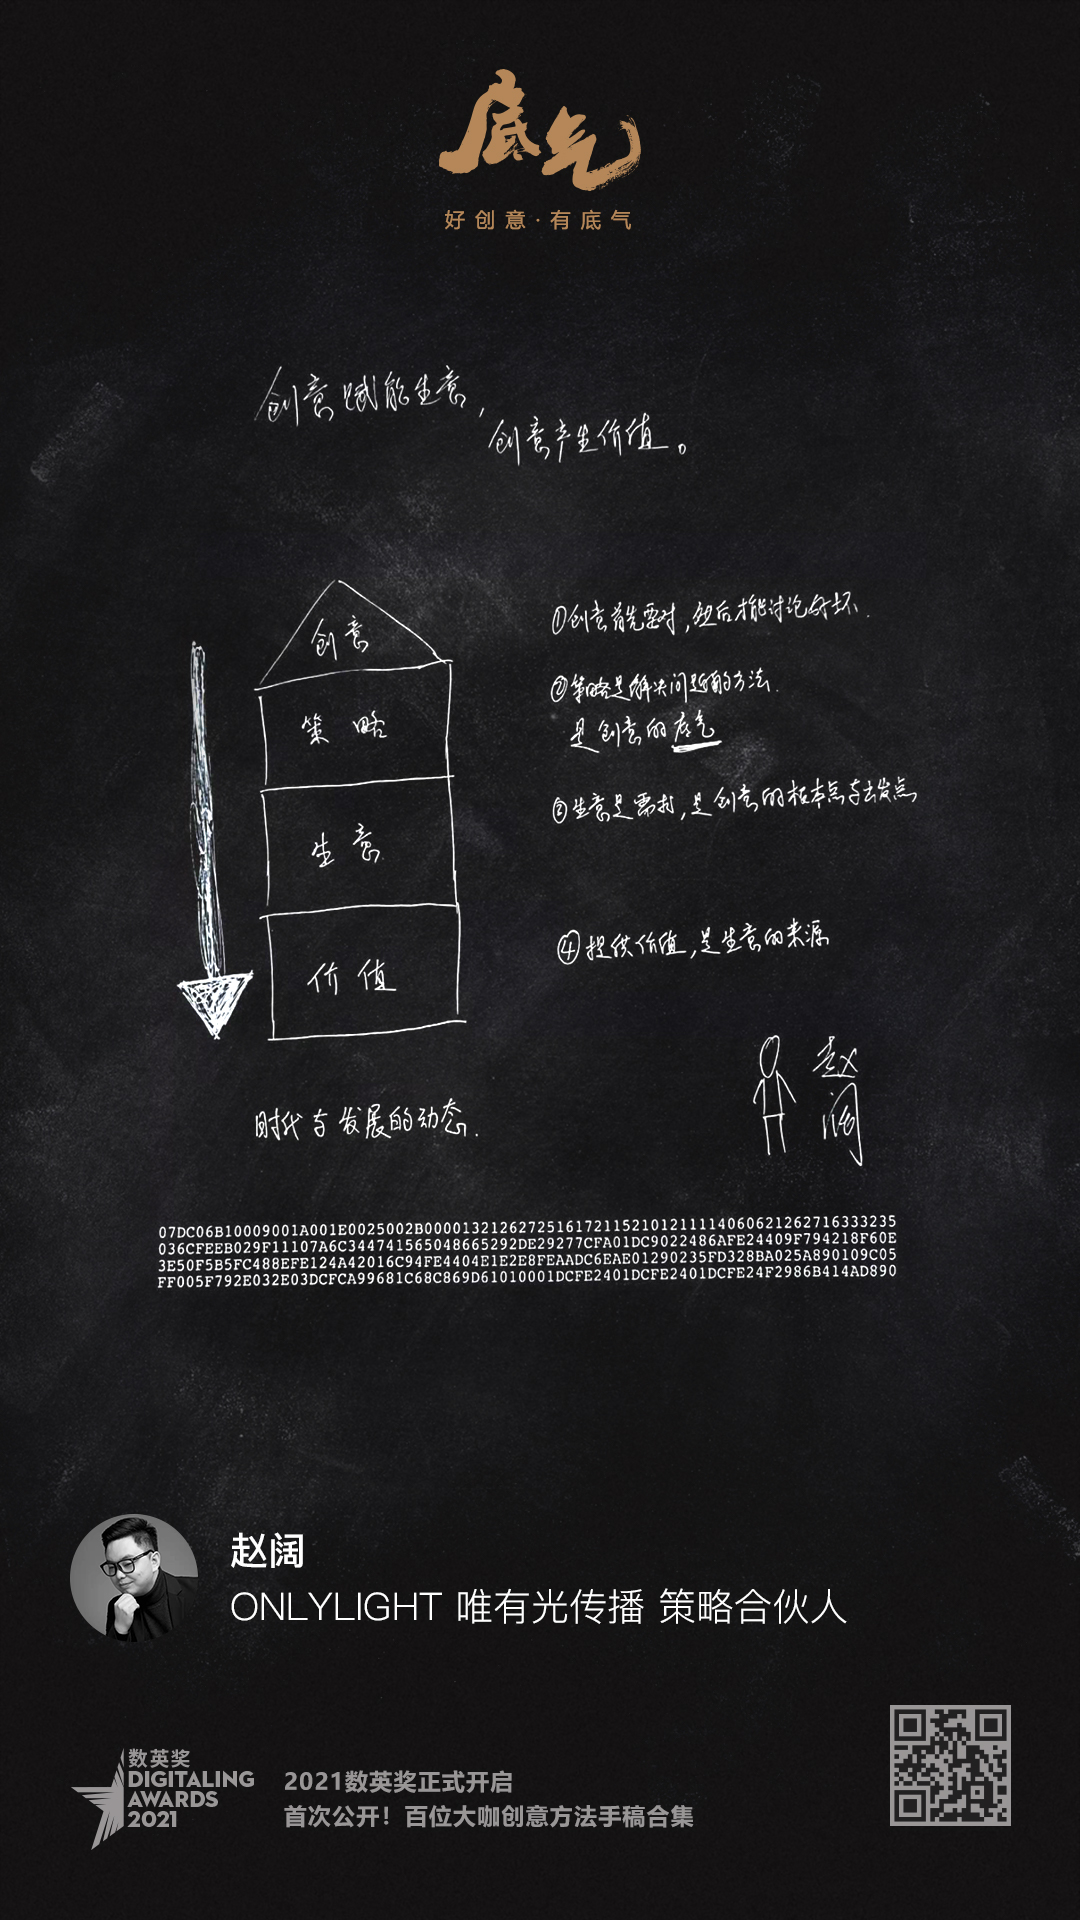 底气
好创意·有底气
创意赋能生意,
创意产生价值。
创意
策略
生意
价值
①创意首先要对,然后才能讨论好坏.
②策略是解决问题的方法.
是创意的底气
③生意是需求,是创意的根本点与出发点
④提供价值,是生意的来源
赵
阔
时代与发展的动态.
07DC06B10009001A001E0025002B0000132126272516172115210121111406062126271633 3235
036CFEEB029F11107A6C344741565048665292DE29277CFA01DC9022486AFE24409F794218F60E
3E50F5B5FC488EFE124A42016C94FE4404E1E2E8FEAADC6EAE01290235FD328BA025A890109C05
FF005F792E032E03DCFCA99681C68C869D61010001DCFE2401DCFE2401DCFE24F2986B414AD890
赵阔
ONLYLIGHT 唯有光传播 策略合伙人
数英奖
DIGITALING
AWARDS
2021
2021数英奖正式开启
首次公开!百位大咖创意方法手稿合集